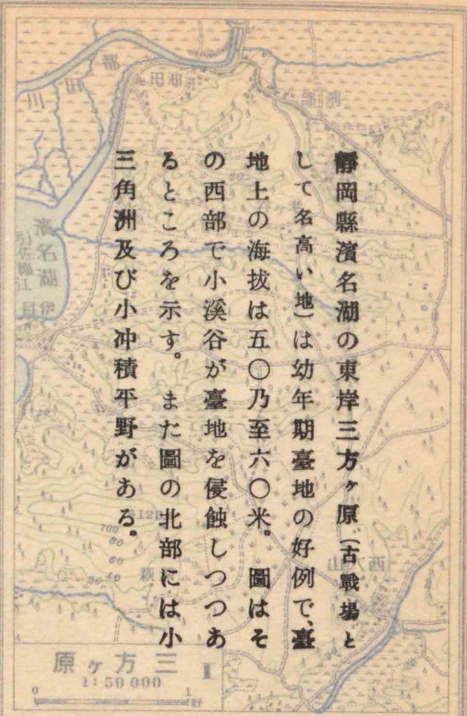 靜岡縣濱名湖の東岸三方ヶ原(古戰場と
して名高い地)は幼年期臺地の好例で、臺
地上の海拔は五〇乃至六〇米。圖はそ
の西部で小溪谷が臺地を侵蝕しつつあ
るところを示す。また圖の北部には小
三角洲及び小冲積平野がある。
川田都
濱名湖
I
原ヶ方三
1:50 000
0 1